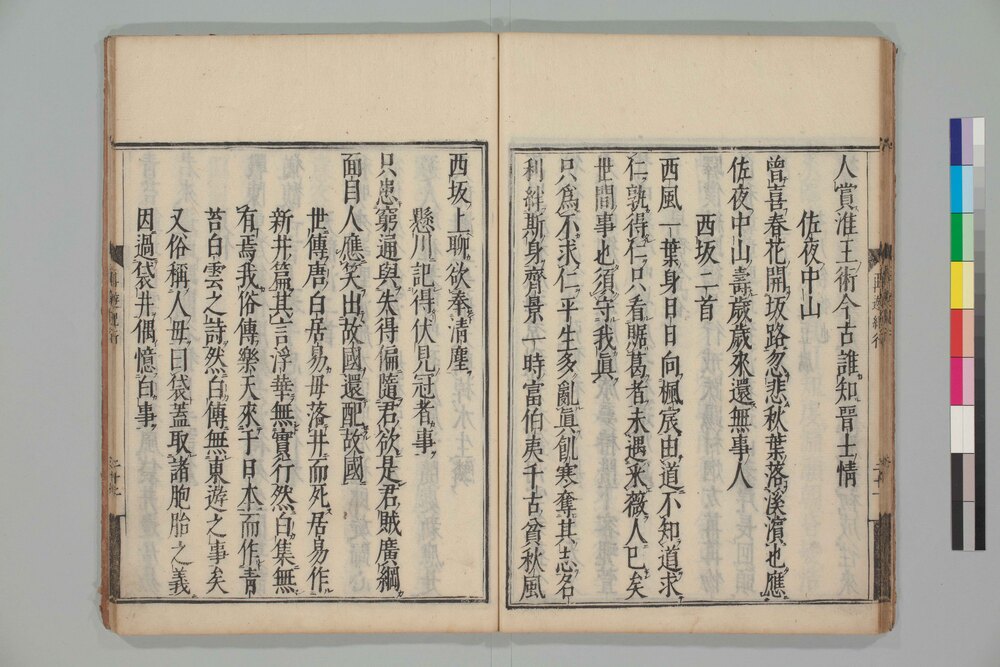 人賞淮王術今古誰知晉士情
佐夜中山
曾喜春花開坂路忽悲秋葉落溪濵也應
佐夜中山壽歲歲來還無事人
西坂二首
西風一葉身日日向楓宸由道不知道求
仁孰得仁只看賜葛者未遇采薇人已矣
世間事也須守我眞
只爲不求仁平生多亂眞飢寒奪其志名
利絆斯身齊景一時富伯夷千古貧秋風
西坂上聊欲奉清塵
懸川記得伏見冠者事
只患窮通與失得偏隨君欲是君賊廣綱
面目人應笑出故國還配故國
世傳唐白居易母落井而死居易作
新井篇其言浮華無實行然白集無
有焉我俗傳樂天來于日本而作青
苔白雲之詩然白傳無東遊之事矣
又俗稱人母曰袋蓋取諸胞胎之義
因過袋井偶憶白事